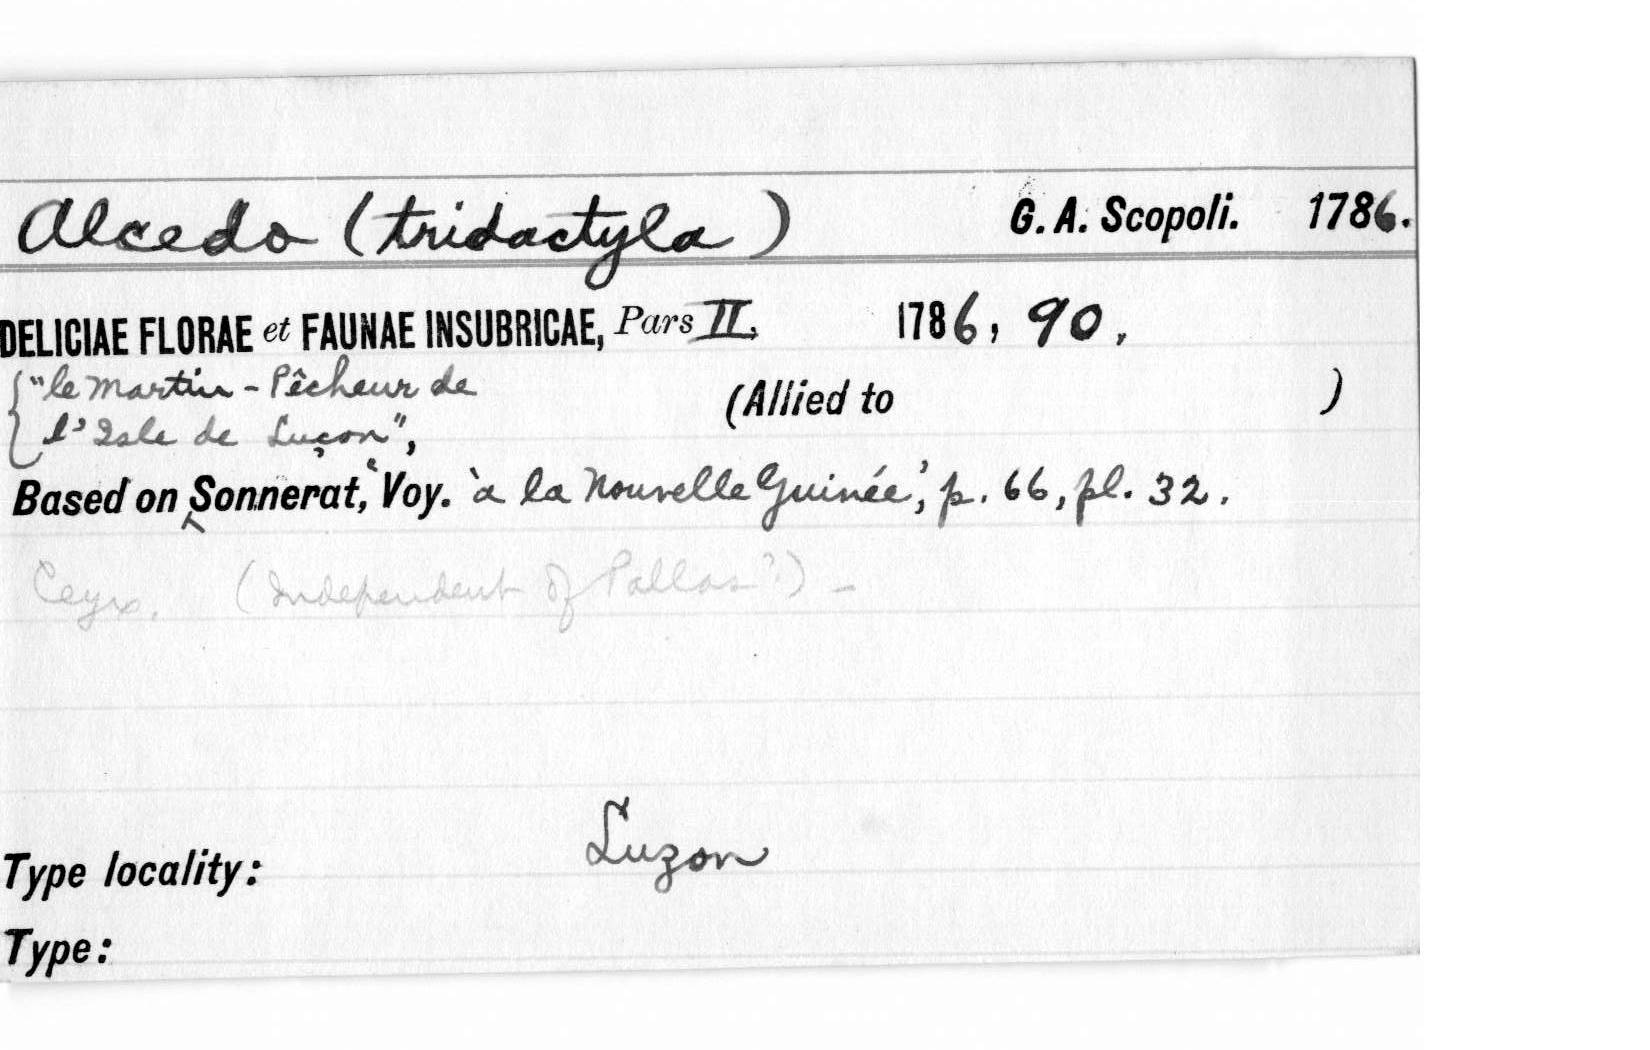 Alcedo (tridactyla) G. A. Scopoli. 1786.
DELICIAE FLORAE et FAUNAE INSUBRICAE, Pars II, 1786, 90,
{"le Martin-Pêcheur de
l'Isle de Luçon", (Allied to )
Based on Sonnerat, 'Voy. à la Nouvelle Guinée', p. 66, pl. 32.
Ceyx. (Independent of Pallas?) –
Luzon
Type locality:
Type: